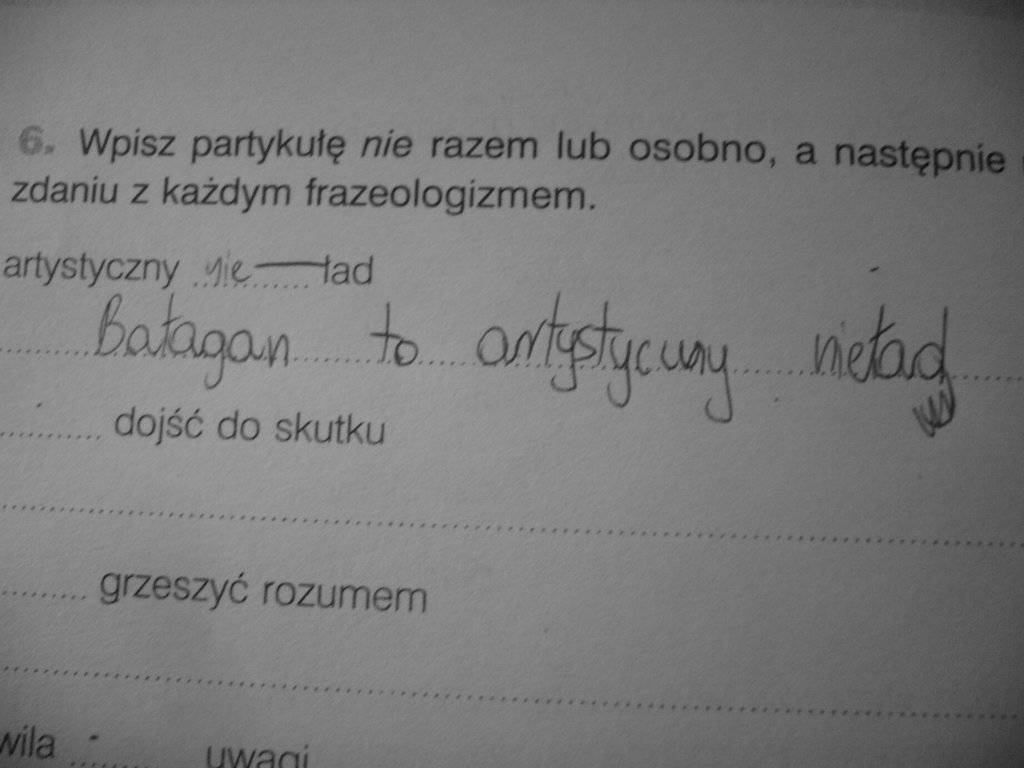 6. Wpisz partykułę nie razem lub osobno, a następnie
zdaniu z każdym frazeologizmem.
artystyczny nie ład
Bałagan to artystycuny nieład
dojść do skutku
grzeszyć rozumem
wila uwagi